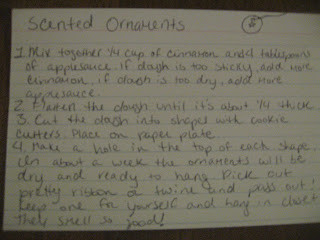 Scented Ornaments
1. Mix together 1/4 cup of cinnamon and tablespoons
of applesauce. If dough is too sticky, add more
cinnamon. if dough is too dry, add more
applesauce.
2. Flatten the dough until it's about 1/4 thick.
3. Cut the dough into shapes with cookie
cutters. Place on paper plate.
4. Make a hole in the top of each shape.
In about a week the ornaments will be
dry and ready to hang. Pick out
pretty ribbon or twine and pass out!
Keep one for yourself and hang in closet
They smell so good!